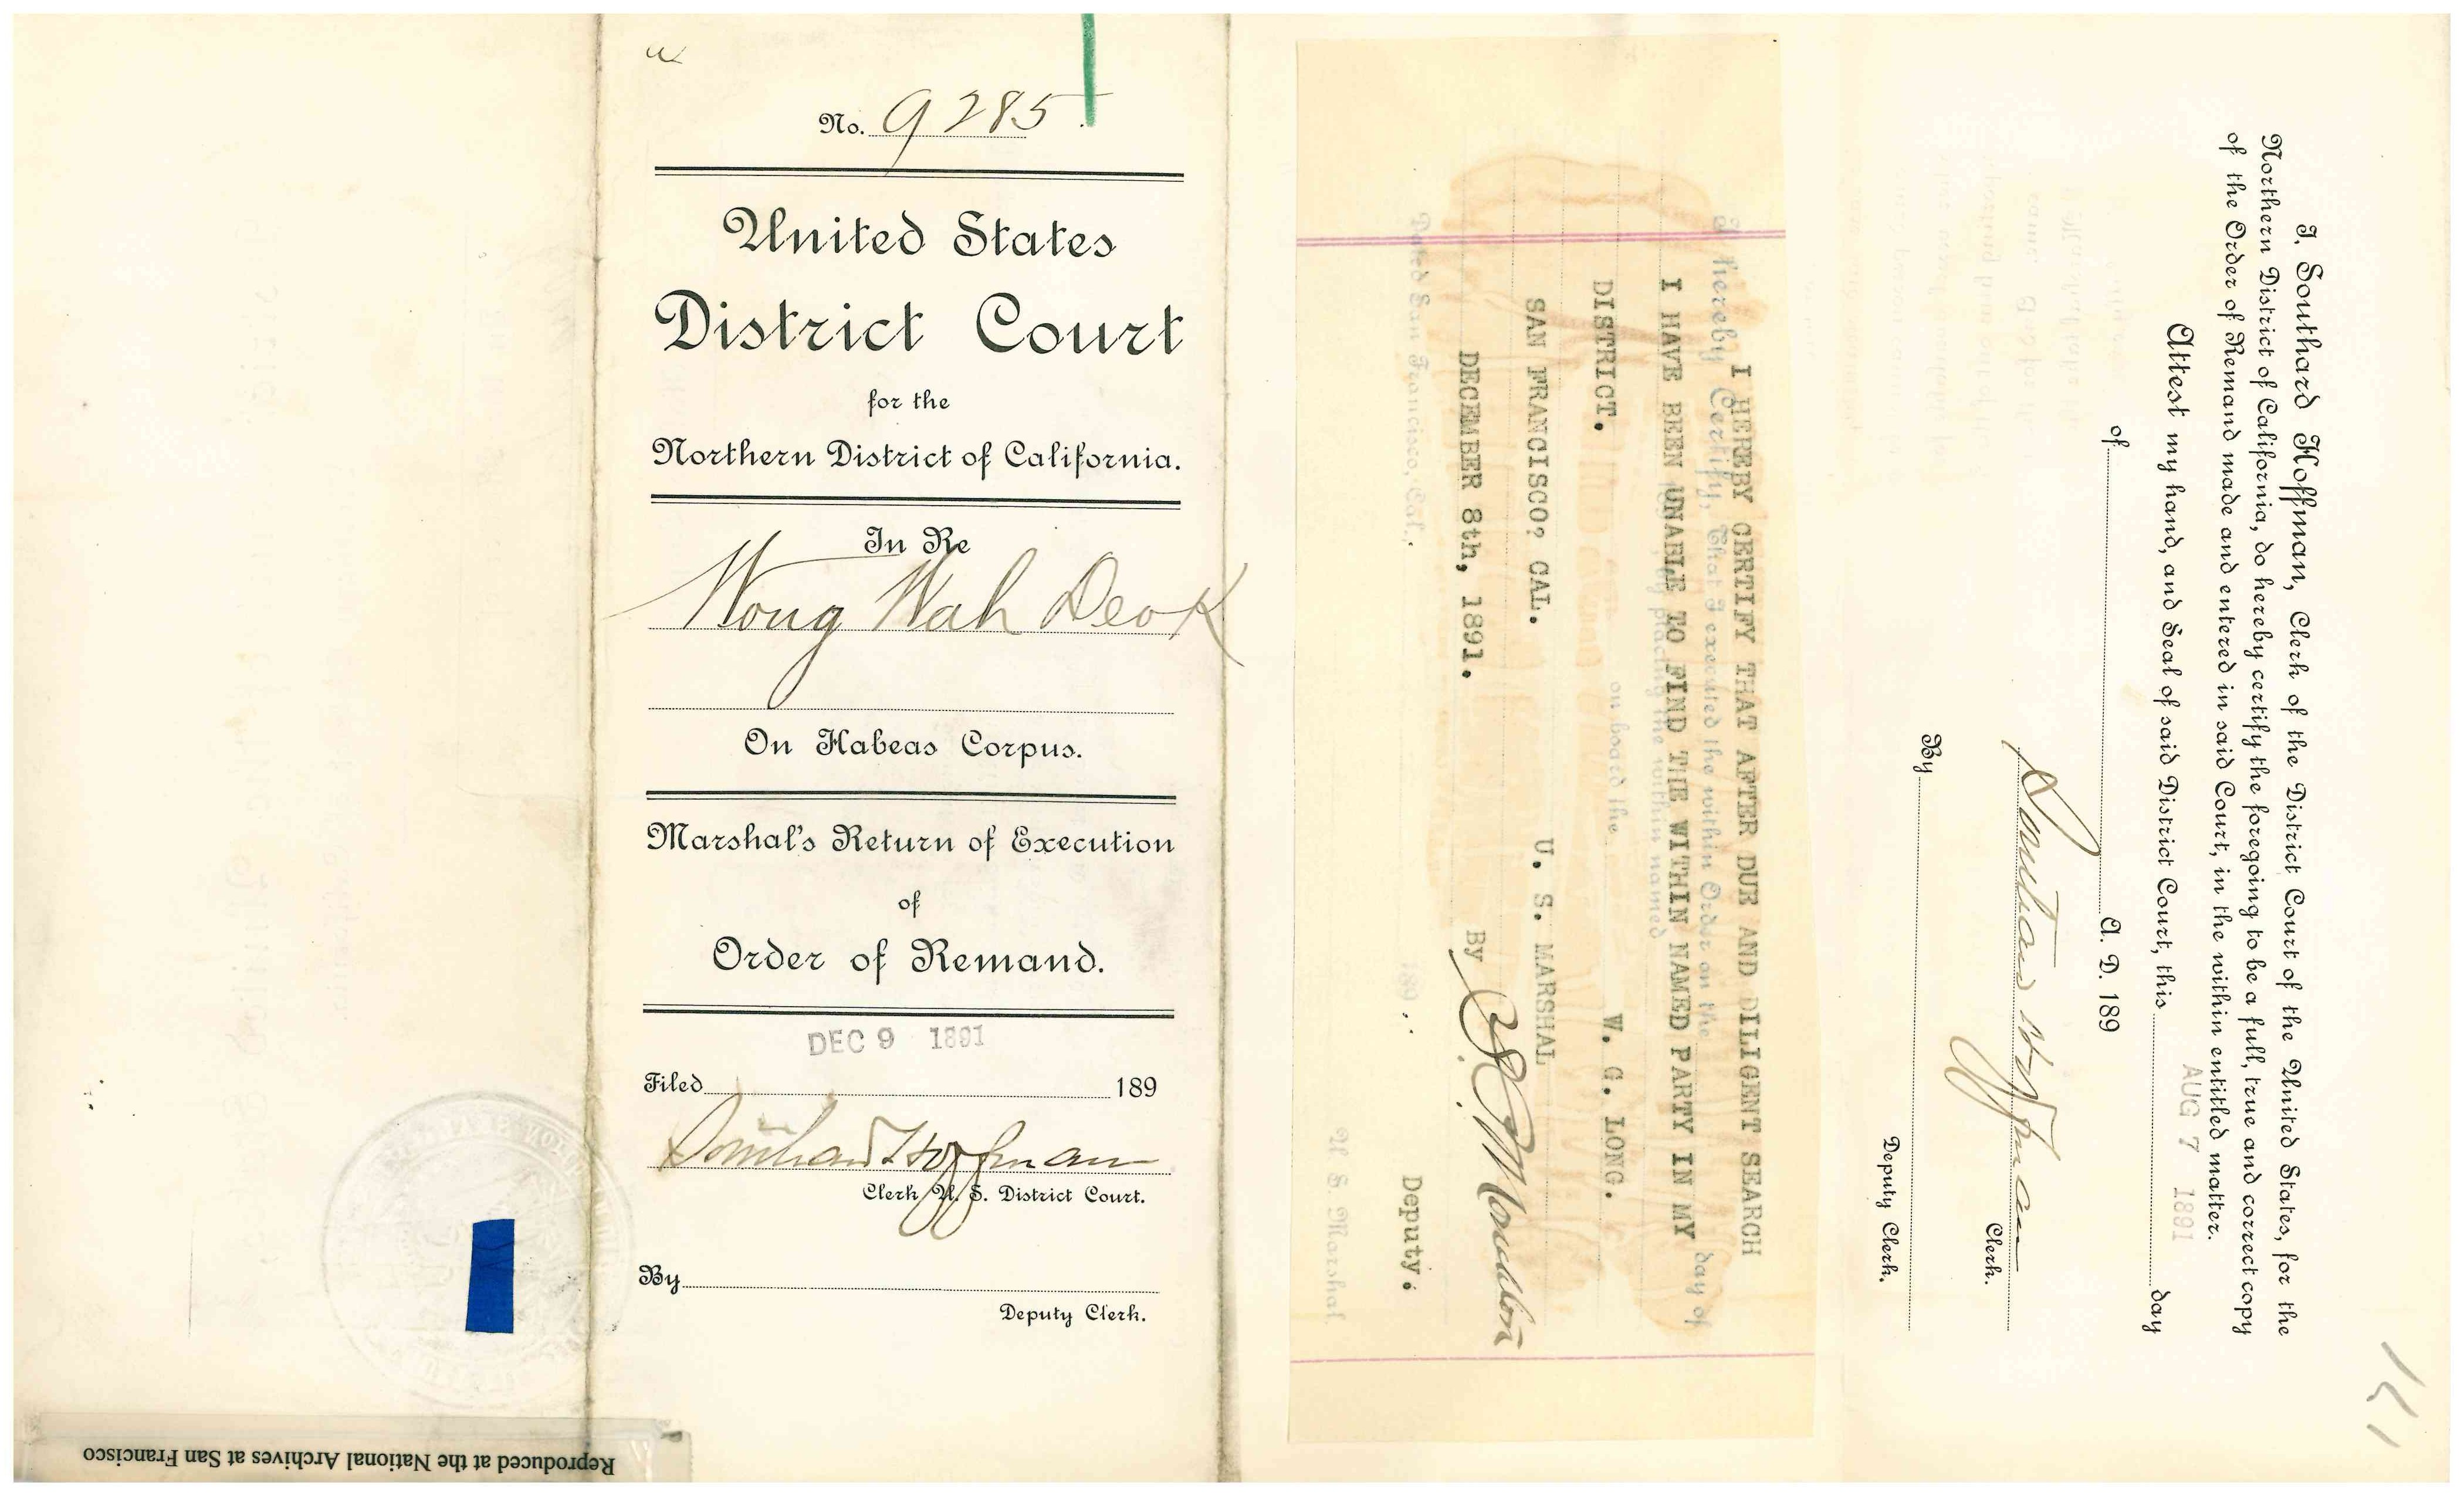 No. 9285
United States
District Court
for the
Northern District of California.
In Re
Wong Wah Deok
On Habeas Corpus.
Marshal's Return of Execution
of
Order of Remand.
DEC 9 1891
Filed 189
Southard Hoffman
Clerk U. S. District Court.
By
Deputy Clerk.
Reproduced at the National Archives at San Francisco
I HEREBY CERTIFY THAT AFTER DUE AND DILIGENT SEARCH
I HAVE BEEN UNABLE TO FIND THE WITHIN NAMED PARTY IN MY
DISTRICT. W. G. LONG.
SAN FRANCISCO? CAL. U. S. MARSHAL
DECEMBER 8th, 1891. By
Deputy.
I hereby Certify, That I executed the within Order on the day of
by placing the within named
on board the
Dated San Francisco, Cal., 189
U. S. Marshal
I, Southard Hoffman, Clerk of the District Court of the United States, for the
Northern District of California, do hereby certify the foregoing to be a full, true and correct copy
of the Order of Remand made and entered in said Court, in the within entitled matter.
Attest my hand, and Seal of said District Court, this AUG 7 1891 day
of A. D. 189
Southard Hoffman
Clerk.
By
Deputy Clerk.
171